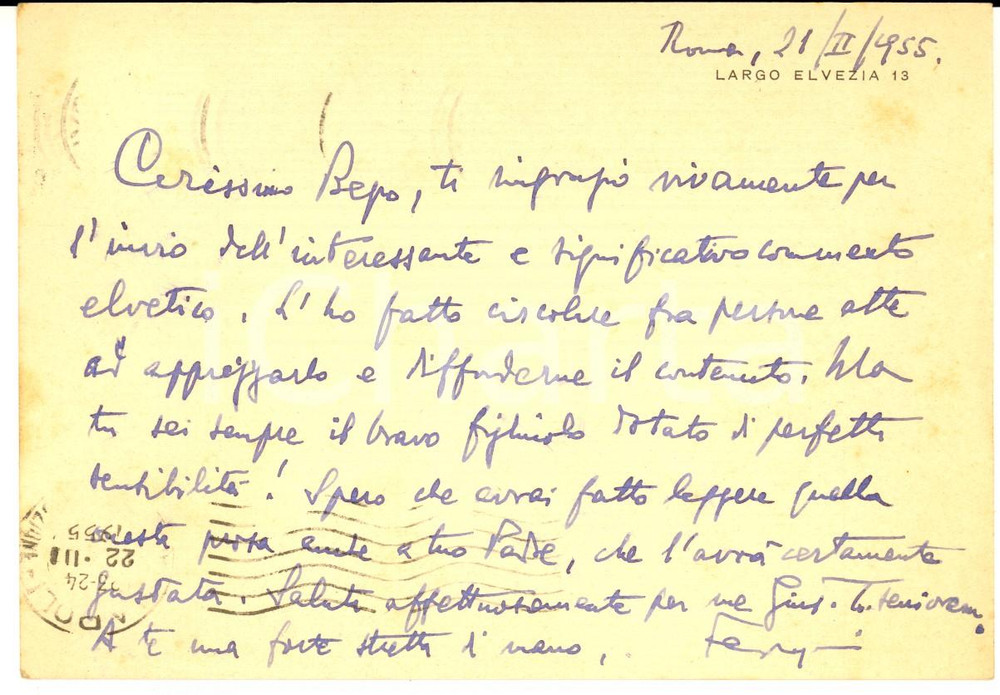 Roma, 21/II/1955.
LARGO ELVEZIA 13
Carissimo Bepo, ti ringrazio vivamente per
l'invio dell'interessante e significativo commento
elvetico. L'ho fatto circolare fra persone atte
ad apprezzarlo e diffonderne il contenuto. Ma
tu sei sempre il bravo figliuolo dotato di perfetta
sensibilità! Spero che avrai fatto leggere quella
onesta prosa anche a tuo Padre, che l'avrà certamente
gustata. Saluta affettuosamente per me Gius. T. seniorem.
A te una forte stretta di mano,
22.III
1955
iCharta